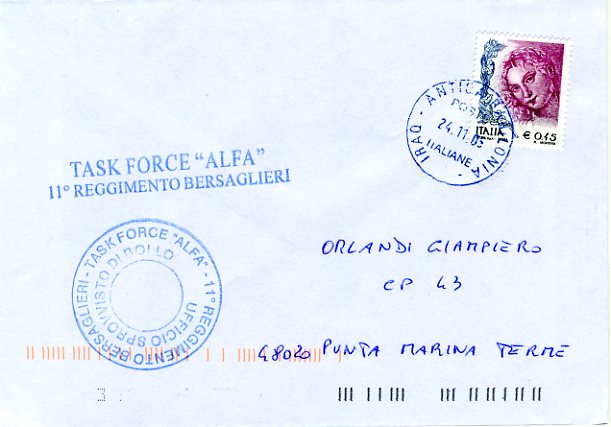 IRAQ - ANTICA BABILONIA -
POSTE
24.11.05
ITALIANE
ITALIA
€ 0,45
TASK FORCE "ALFA"
11° REGGIMENTO BERSAGLIERI
TASK FORCE "ALFA" - 11° REGGIMENTO BERSAGLIERI -
UFFICIO SPROVVISTO DI BOLLO
ORLANDI GIAMPIERO
CP 43
48020 PUNTA MARINA TERME